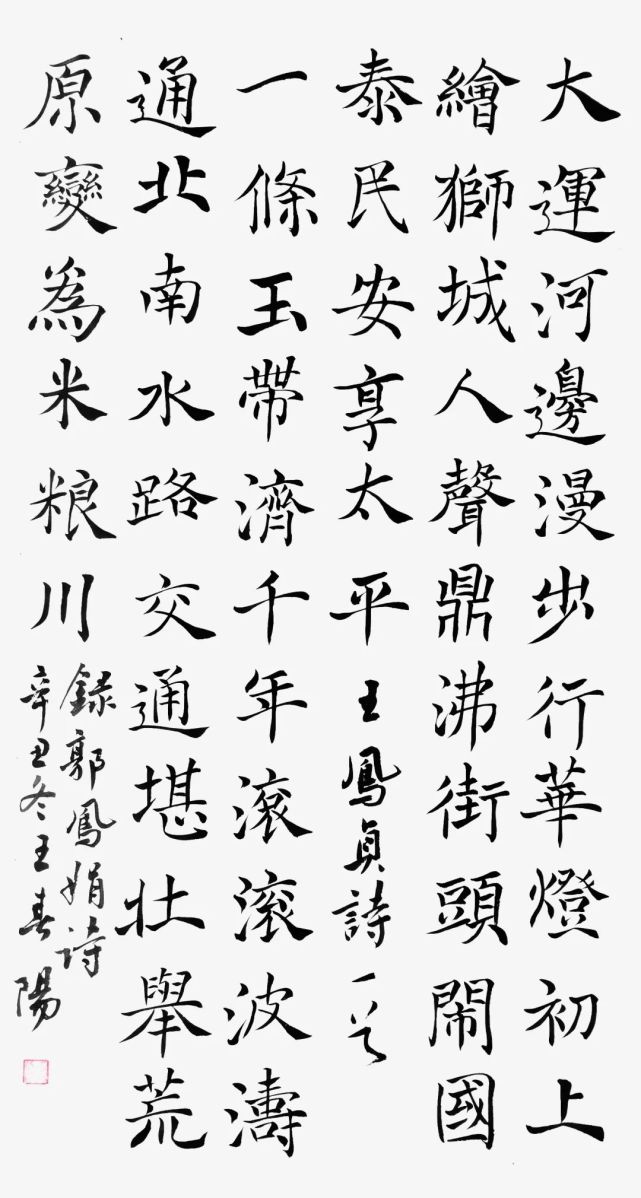 大運河邊漫步行華燈初上
繪獅城人聲鼎沸街頭鬧國
泰民安享太平 王鳳貞詩一首
一條玉帶濟千年滾滾波濤
通北南水路交通堪壮舉荒
原變為米粮川
録郭鳳娟诗
辛丑冬王春陽